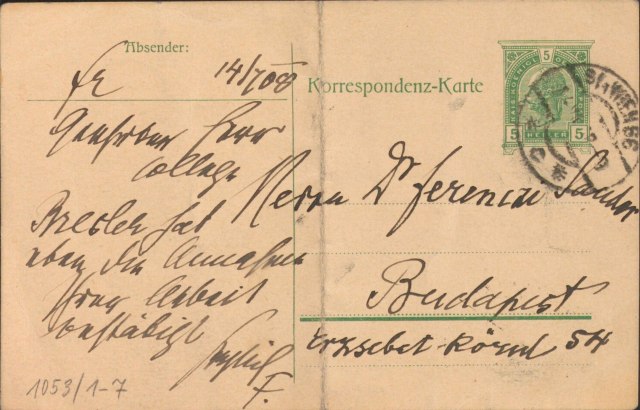 Absender:
Fr
14/7 08
Geehrter Herr
College
Bresler hat
eben die Annahme
Ihrer Arbeit
bestätigt
Herzlich
F.
1053/1-7
Korrespondenz-Karte
5
5 HELLER 5
WIEN
Herrn Dr Ferenczi Sándor
Budapest
Erzsébet-Körút 54